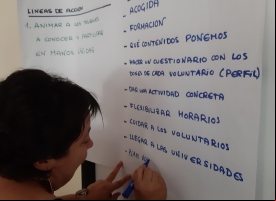 LINEAS DE ACCION
1. ANIMAR A
A CONOCER Y
EN MANOS
- ACOGIDA
- FORMACION
- QUE CONTENIDOS PONEMOS
- HACER UN CUESTIONARIO CON LOS
DE CADA VOLUNTARIO (PERFIL)
- DAR UNA ACTIVIDAD CONCRETA
- FLEXIBILIZAR HORARIOS
- CUIDAR A LOS VOLUNTARIOS
- LLEGAR A LAS UNIVERSIDADES
- PLAN